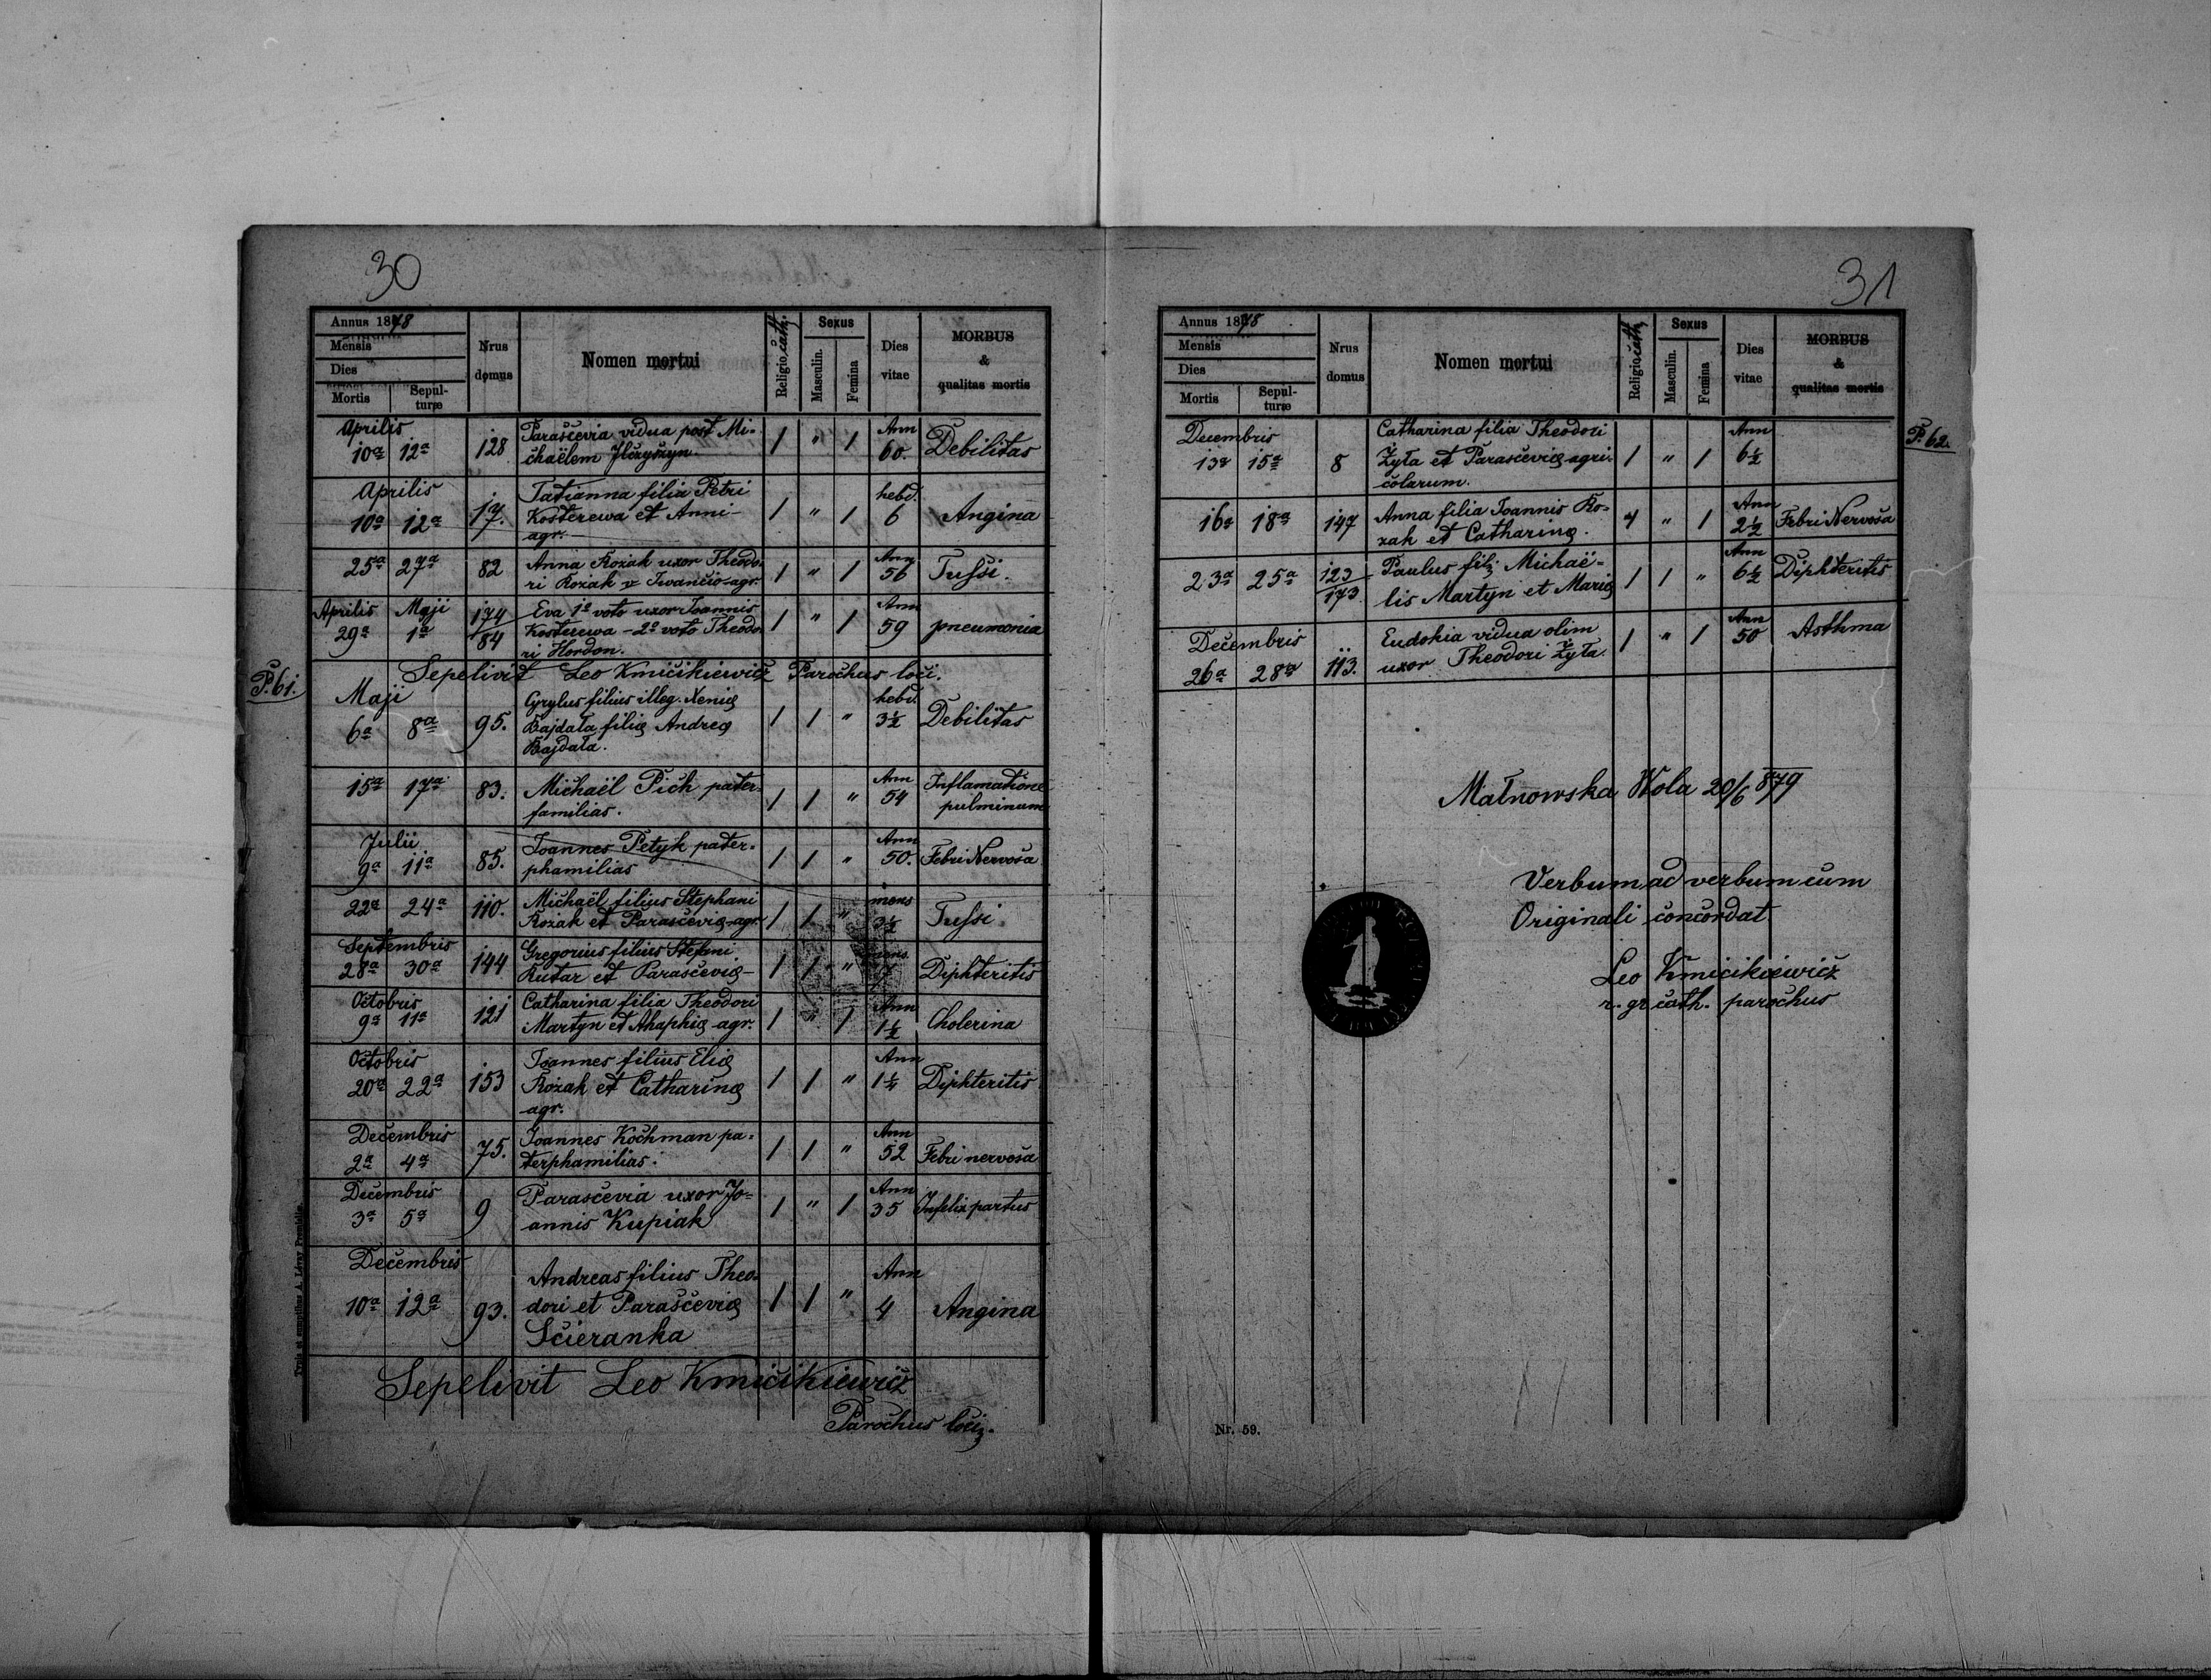 30
Annus 1878
Mensis
Dies
Mortis
Sepul-
turæ
Nrus
domus
Nomen mortui
Religio cath.
Sexus
Masculin.
Femina
Dies
vitae
MORBUS
&
qualitas mortis
Aprilis
10a 12a 128 Parascevia vidua post Mi-
chaëlem Ilczyszyn. 1 " 1 Ann 60. Debilitas
Aprilis
10a 12a 17. Tatianna filia Petri
Kosterewa et Anni-
agr. 1 " 1 hebd. 6 Angina
25a 27a 82 Anna Kozak uxor Theodo-
ri Kozak v Iwancio agr. 1 " 1 Ann 56 Tussi.
Aprilis Maji
29a 1a 174/84 Eva 1o voto uxor Joannis
Kosterewa - 2o voto Theodo-
ri Hordon. 1 " 1 Ann 59 pneumonia
Sepelivit Leo Kmicikiewicz Parochus loci.
P. 61.
Maji
6a 8a 95. Cyrylus filius illeg. Xeniæ
Bajdała filiæ Andreæ
Bajdała. 1 1 " hebd. 3½ Debilitas
15a 17a 83. Michaël Pich pater-
familias. 1 1 " Ann 54 Inflamatione
pulminum
Julii
9a 11a 85. Joannes Petyk pater-
phamilias 1 1 " Ann 50. Febri Nervosa
22a 24a 110. Michaël filius Stephani
Kozak et Parasceviæ agr. 1 1 " mens 3½ Tussi
Septembris
28a 30a 144 Gregorius filius Stefani
Kutar et Parasceviæ - 1 1 " 7 Diphteritis
Octobris
9a 11a 121 Catharina filia Theodori
Martyn et Ahaphiæ agr. 1 " 1 Ann 1½ Cholerina
Octobris
20a 22a 153 Joannes filius Eliæ
Kozak et Catharinæ
agr. 1 1 " Ann 1¼ Diphteritis
Decembris
2a 4a 75. Joannes Kochman pa-
terphamilias. 1 1 " Ann 52 Febri nervosa
Decembris
3a 5a 9 Parascevia uxor Jo-
annis Kupiak 1 " 1 Ann 35 Infelix partus
Decembris
10a 12a 93. Andreas filius Theo-
dori et Parasceviæ
Scieranka 1 1 " Ann 4 Angina
Sepelivit Leo Kmicikiewicz
Parochus loci.
31
Annus 1878
Mensis
Dies
Mortis
Sepul-
turæ
Nrus
domus
Nomen mortui
Religio cath.
Sexus
Masculin.
Femina
Dies
vitae
MORBUS
&
qualitas mortis
P. 62.
Decembris
13a 15a 8 Catharina filia Theodori
Żyła et Parasceviæ agri-
colarum. 1 " 1 Ann 6½
16a 18a 147 Anna filia Joannis Ko-
zak et Catharinæ. 1 " 1 Ann 2½ Febri Nervosa
23a 25a 123/173 Paulus fil. Michaë-
lis Martyn et Mariæ 1 1 " Ann 6½ Diphteritis
Decembris
26a 28a 113. Eudokia vidua olim
uxor Theodori Żyła. 1 " 1 Ann 50 Asthma
Małnowska Wola 20/6 879
Verbum ad verbum cum
Originali concordat
Leo Kmicikiewicz
r. gr cath. parochus
Nr. 59.